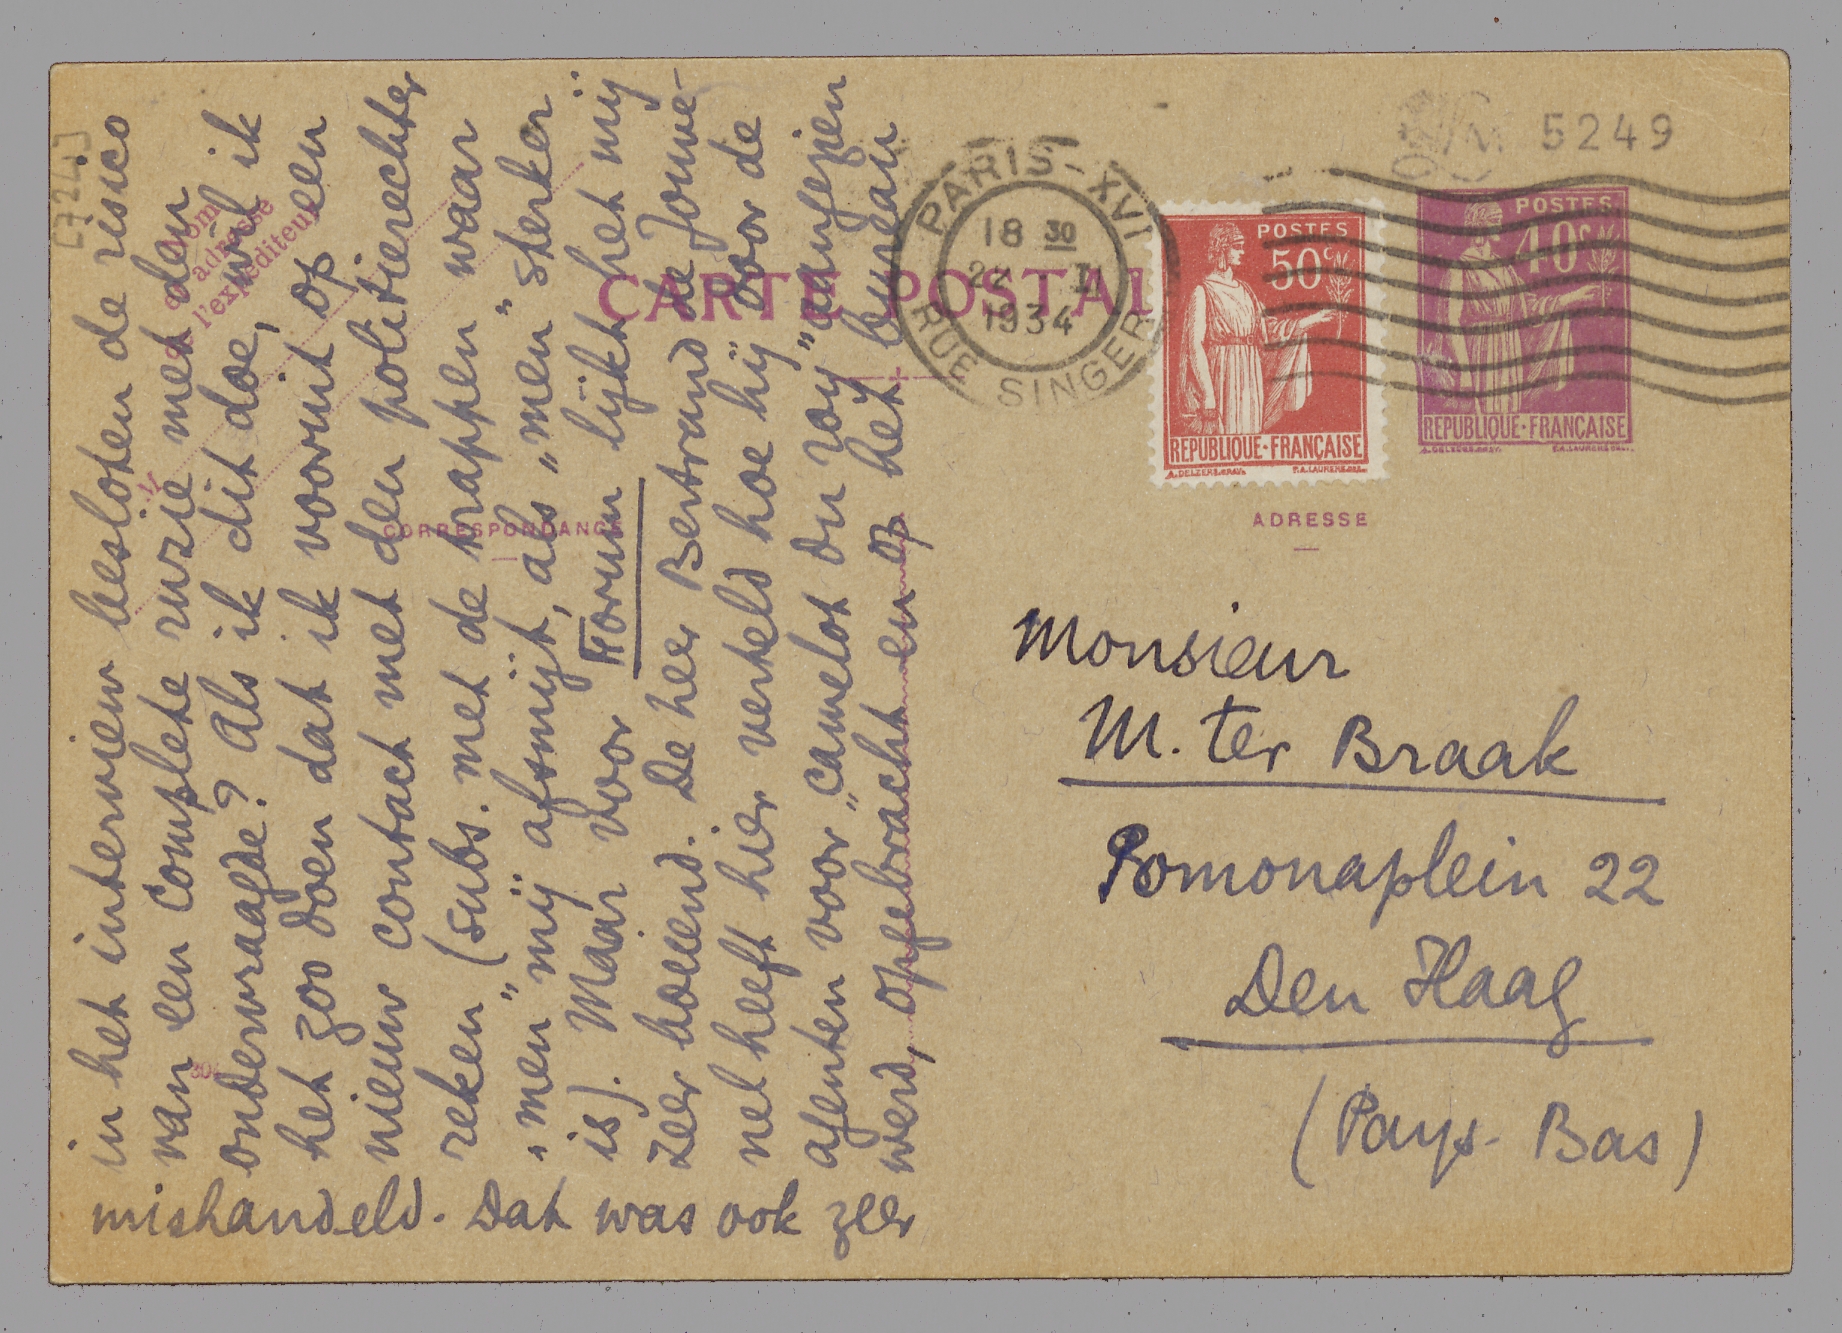 [724]
Nom
et adresse
de
l'expéditeur
M
CARTE POSTALE
CORRESPONDANCE
in het interview besloten de risico
van een complete ruzie met den
ondervraagde? Als ik dit doe, wil ik
het zoo doen dat ik vooruit op een
nieuw contact met den politierechter
reken (subs. met de trappen waar
„men” mij afsmijt, als „men” sterker
is). Maar voor Forum lijkt het mij
zeer boeiend. De heer Bertrand de Jouve-
nel heeft hier verteld hoe hij door de
agenten voor „camelot du roy” aangezien
werd, opgebracht en op het bureau
mishandeld. Dat was ook zeer
PARIS-XVI
18 30
22 II
1934
RUE SINGER
POSTES
50c
REPUBLIQUE·FRANÇAISE
A.DELZERS.GRAV. P.A.LAURENS.DEL.
5249
POSTES
40c
REPUBLIQUE·FRANÇAISE
A.DELZERS.GRAV. P.A.LAURENS.DEL.
ADRESSE
Monsieur
M. ter Braak
Pomonaplein 22
Den Haag
(Pays-Bas)